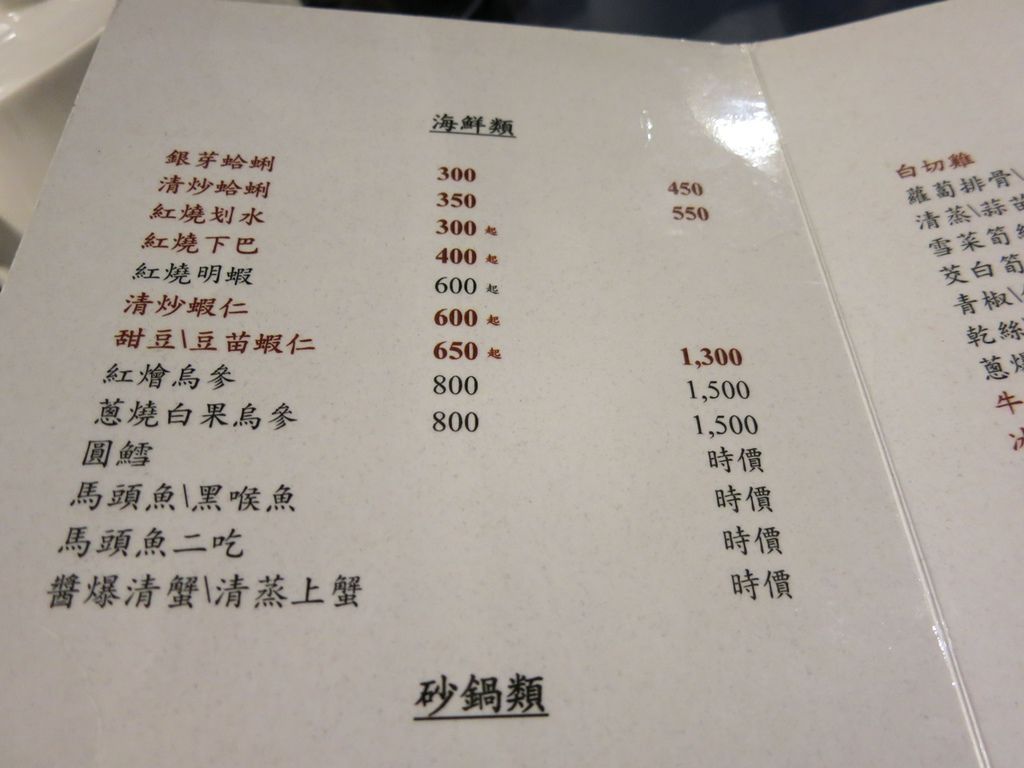 海鮮類
銀芽蛤蜊 300 450
清炒蛤蜊 350 550
紅燒划水 300 起
紅燒下巴 400 起
紅燒明蝦 600 起
清炒蝦仁 600 起
甜豆\豆苗蝦仁 650 起 1,300
紅燴烏參 800 1,500
蔥燒白果烏參 800 1,500
圓鱈 時價
馬頭魚\黑喉魚 時價
馬頭魚二吃 時價
醬爆清蟹\清蒸上蟹 時價
砂鍋類
白切雞
蘿蔔排骨\
清蒸\蒜苗
雪菜筍
茭白筍
青椒\
乾絲
蔥
牛